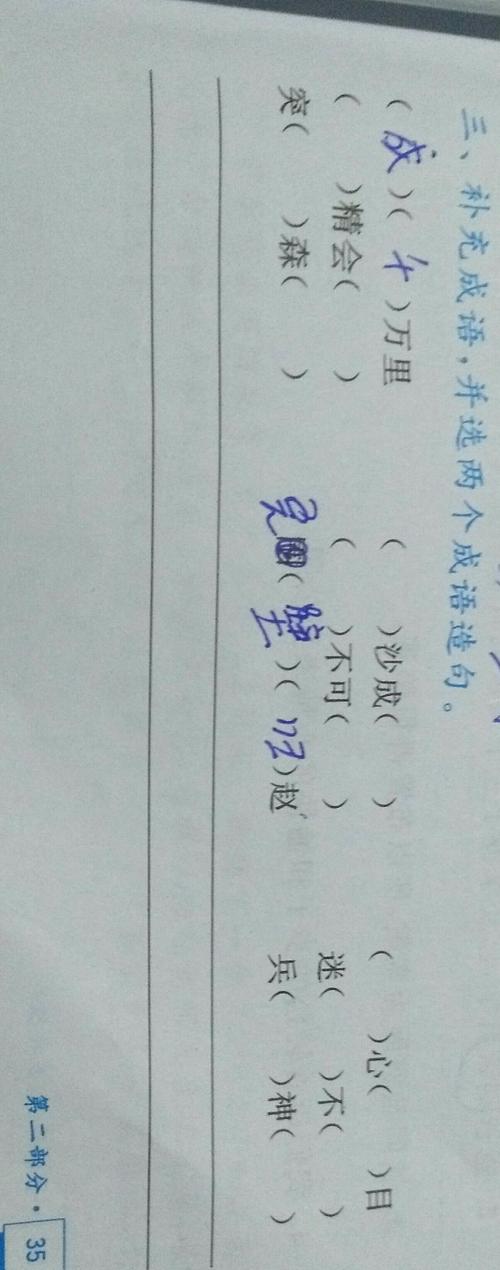 三、补充成语,并选两个成语造句。
( 成 )( 千 )万里 ( )沙成( ) ( )心( )目
( )精会( ) ( )不可( ) 迷( )不( )
突( )森( ) 完( 璧 )( 归 )赵 兵( )神( )
第二部分·35